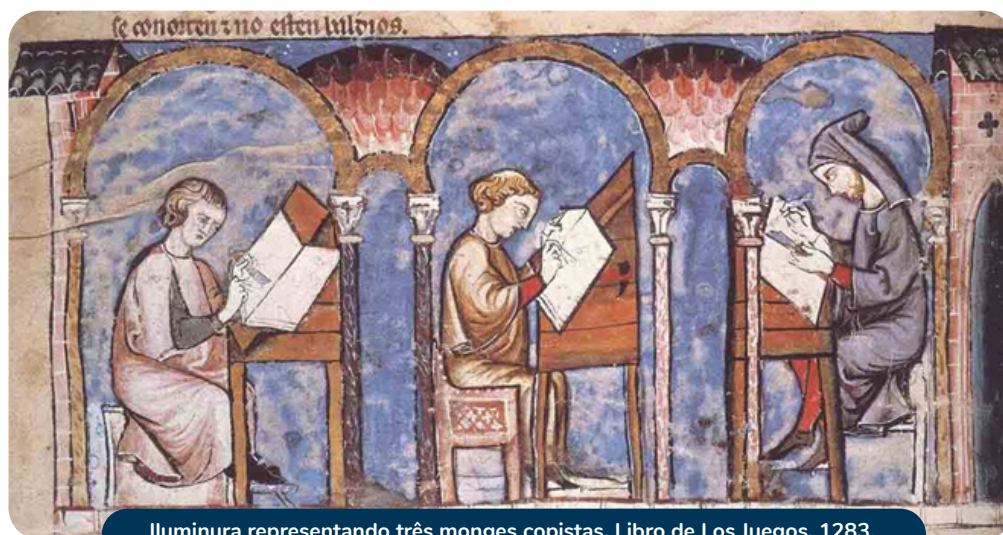 se conorten ⁊ no esten baldios.
Iluminura representando três monges copistas. Libro de Los Juegos, 1283.